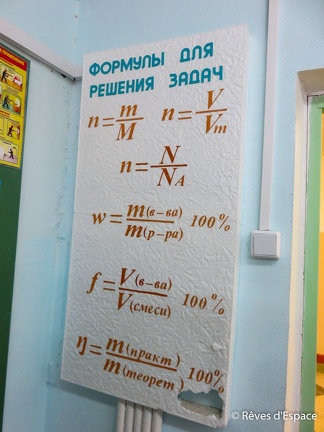 ФОРМУЛЫ ДЛЯ
РЕШЕНИЯ ЗАДАЧ
n = m/M n = V/Vm
n = N/NA
w = m(в-ва)/m(р-ра) 100%
f = V(в-ва)/V(смеси) 100%
η = m(практ)/m(теорет) 100%
© Rêves d'Espace